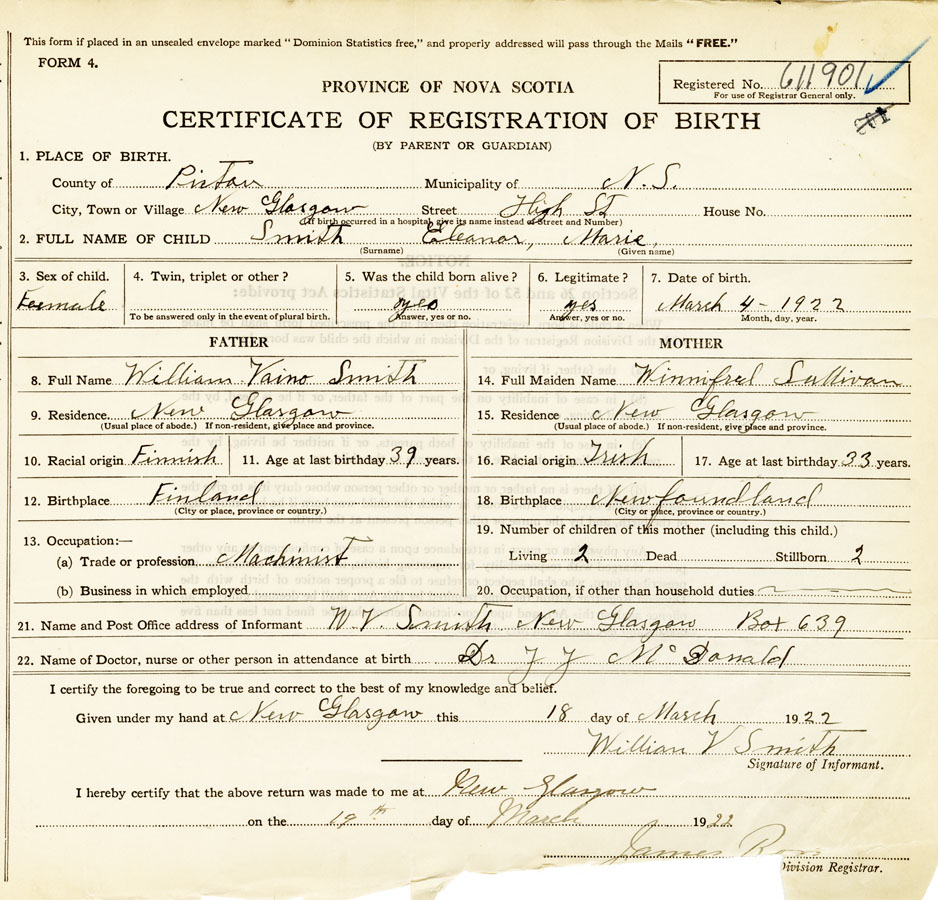 This form if placed in an unsealed envelope marked "Dominion Statistics free," and properly addressed will pass through the Mails "FREE."
FORM 4.
Registered No. 611901
For use of Registrar General only.
PROVINCE OF NOVA SCOTIA
201
CERTIFICATE OF REGISTRATION OF BIRTH
(BY PARENT OR GUARDIAN)
1. PLACE OF BIRTH.
County of Pictou Municipality of N.S.
City, Town or Village New Glasgow Street High St House No.
(If birth occurred in a hospital, give its name instead of Street and Number)
2. FULL NAME OF CHILD Smith Eleanor, Marie,
(Surname) (Given name)
3. Sex of child. 4. Twin, triplet or other? 5. Was the child born alive? 6. Legitimate? 7. Date of birth.
Feemale yes yes March 4 - 1922
To be answered only in the event of plural birth. Answer, yes or no. Answer, yes or no. Month, day, year.
FATHER MOTHER
8. Full Name William Vaino Smith 14. Full Maiden Name Winnifred Sullivan
9. Residence. New Glasgow 15. Residence New Glasgow
(Usual place of abode.) If non-resident, give place and province. (Usual place of abode.) If non-resident, give place and province.
10. Racial origin Finnish 11. Age at last birthday 39 years. 16. Racial origin Irish 17. Age at last birthday 33 years.
12. Birthplace Finland 18. Birthplace Newfoundland
(City or place, province or country.) (City or place, province or country.)
13. Occupation:— 19. Number of children of this mother (including this child.)
(a) Trade or profession Machinist Living 2 Dead Stillborn 2
(b) Business in which employed 20. Occupation, if other than household duties
21. Name and Post Office address of Informant W. V. Smith New Glasgow Box 639
22. Name of Doctor, nurse or other person in attendance at birth Dr J J McDonald
I certify the foregoing to be true and correct to the best of my knowledge and belief.
Given under my hand at New Glasgow this 18 day of March 1922
William V Smith
Signature of Informant.
I hereby certify that the above return was made to me at New Glasgow
on the 19th day of March 1922
James
Division Registrar.